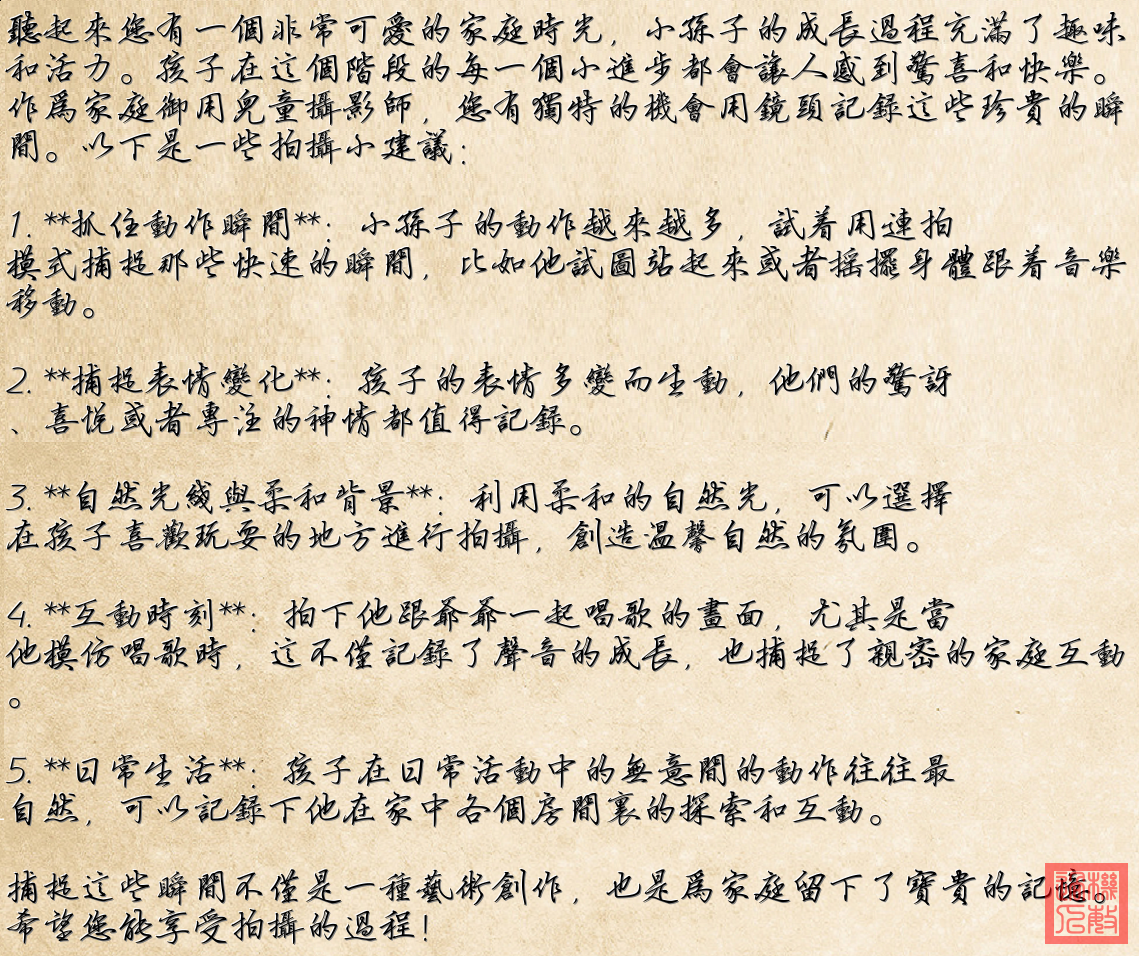 聽起來您有一個非常可愛的家庭時光，小孫子的成長過程充滿了趣味
和活力。孩子在這個階段的每一個小進步都會讓人感到驚喜和快樂。
作爲家庭御用兒童攝影師，您有獨特的機會用鏡頭記錄這些珍貴的瞬
間。以下是一些拍攝小建議：
1. **抓住動作瞬間**：小孫子的動作越來越多，試着用連拍
模式捕捉那些快速的瞬間，比如他試圖站起來或者搖擺身體跟着音樂
移動。
2. **捕捉表情變化**：孩子的表情多變而生動，他們的驚訝
、喜悅或者專注的神情都值得記錄。
3. **自然光綫與柔和背景**：利用柔和的自然光，可以選擇
在孩子喜歡玩耍的地方進行拍攝，創造溫馨自然的氛圍。
4. **互動時刻**：拍下他跟爺爺一起唱歌的畫面，尤其是當
他模仿唱歌時，這不僅記錄了聲音的成長，也捕捉了親密的家庭互動
。
5. **日常生活**：孩子在日常活動中的無意間的動作往往最
自然，可以記錄下他在家中各個房間裏的探索和互動。
捕捉這些瞬間不僅是一種藝術創作，也是爲家庭留下了寶貴的記憶。
希望您能享受拍攝的過程！